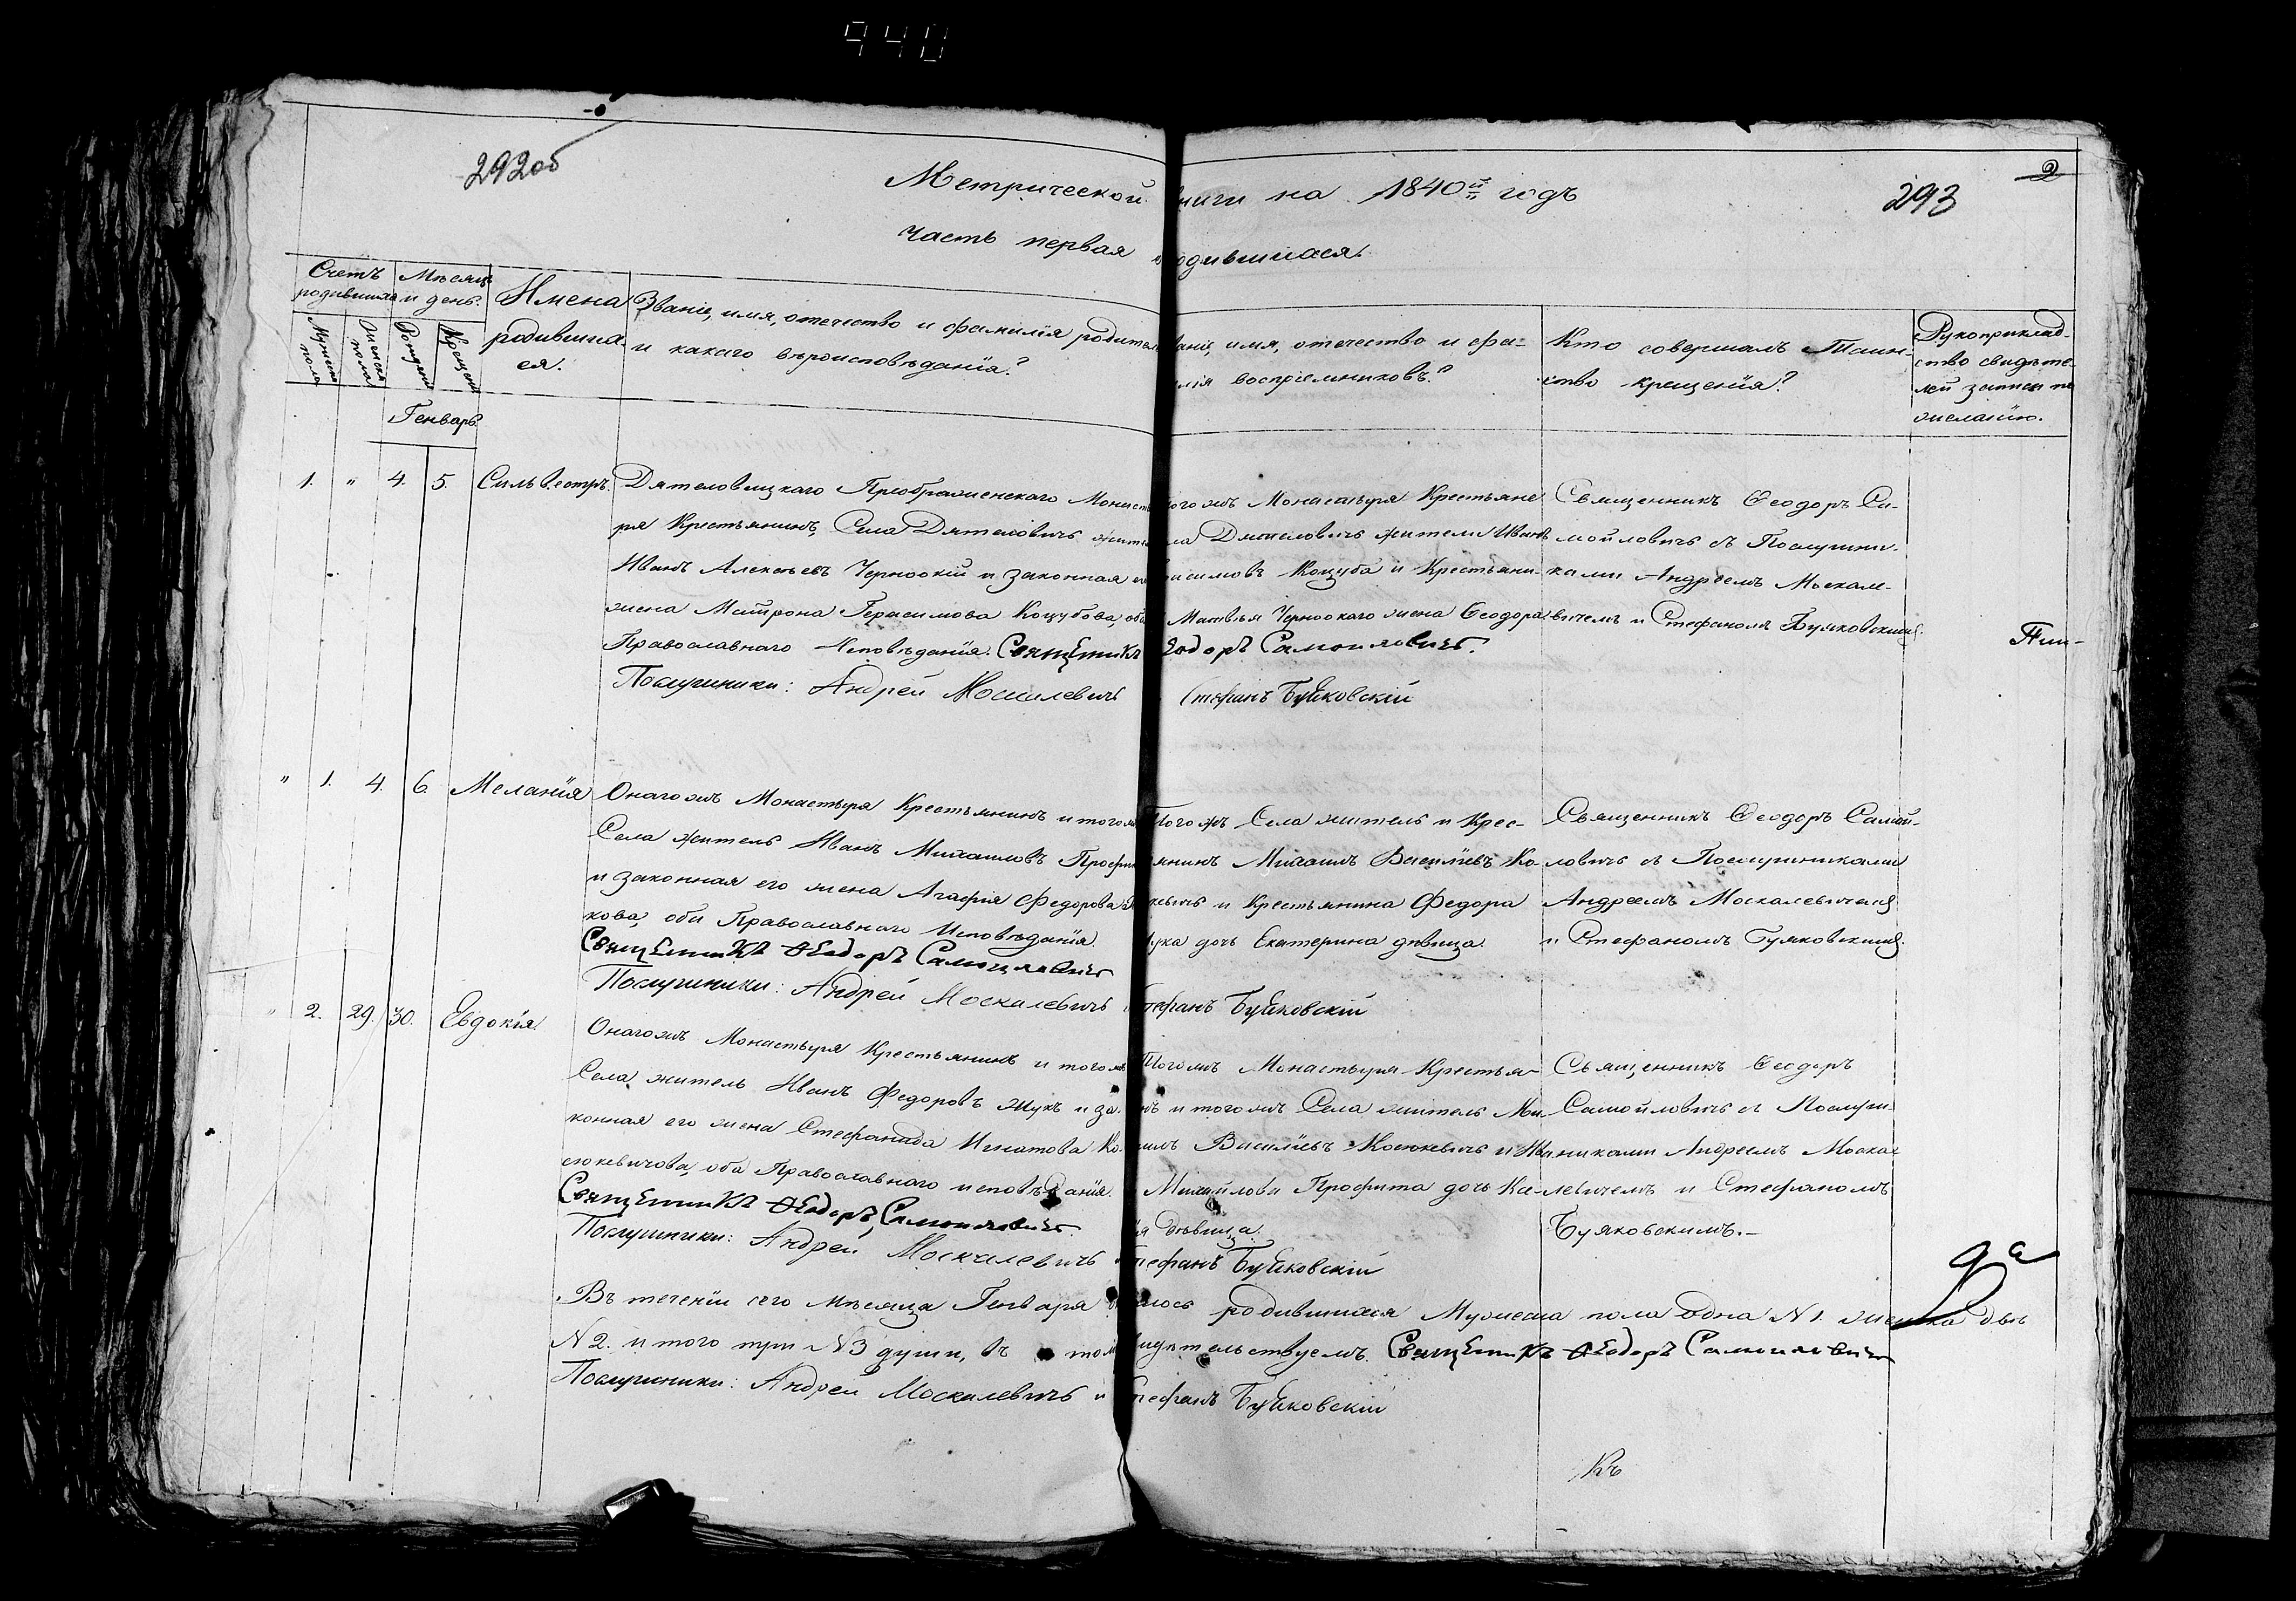 940
292об
293
2
Метрической книги на 1840й годъ
часть первая о родившихся.
Счетъ родившихся
Мѣсяцъ и день.
Имена родившихся.
Званіе, имя, отечество и фамилія родителей
и какаго вѣроисповѣданія?
Званіе, имя, отечество и фа-
милія воспріемниковъ?
Кто совершалъ Таин-
ство крещенія?
Рукоприклад-
ство свидѣте-
лей записи по
желанію.
Мужеска пола
Женска пола
Рожденія
Крещенія
Генварь.
1. " 4. 5. Сильвестръ.
Дятеловицкаго Преображенскаго Монасты-
ря Крестьянинъ, Села Дятеловичъ житель
Иванъ Алексѣевъ Черноокій и законная его
жена Матрона Герасимова Коцубова, оба
Православнаго Исповѣданія. Священикъ Ѳеодоръ Самойловичъ.
Послушники: Андрей Москалевичъ Стефанъ Буяковскій
Того жъ Монастыря Крестьяне
Села Дятеловичъ жители Иванъ
Герасимовъ Коцуба и Крестьяни-
на Матвѣя Черноокаго жена Ѳеодора
Священникъ Ѳеодоръ Са-
мойловичъ съ Послушни-
ками Андреемъ Москале-
вичемъ и Стефаномъ Буяковскимъ.
" 1. 4. 6. Меланія
Онагожъ Монастыря Крестьянинъ и тогожъ
Села житель Иванъ Михаиловъ Профита
и законная его жена Агафія Федорова
кова, оби Православнаго Исповѣданія.
Священикъ Ѳеодоръ Самойловичъ
Послушники: Андрей Москалевичъ Стефанъ Буяковскій
Того жъ Села житель и Крес-
тьянинъ Михаилъ Василіевъ Ко-
кевичъ и Крестьянина Федора
Жука дочь Екатерина дѣвица.
Священникъ Ѳеодоръ Самой-
ловичъ съ Послушниками
Андреемъ Москалевичемъ
и Стефаномъ Буяковскимъ.
" 2. 29. 30. Евдокія
Онагожъ Монастыря Крестьянинъ и тогожъ
Села житель Иванъ Федоровъ Жукъ и за-
конная его жена Стефанида Игнатова Ко-
сюкевичова, оба Православнаго исповѣданія.
Священикъ Ѳеодоръ Самойловичъ.
Послушники: Андрей Москалевичъ Стефанъ Буяковскій
Тогожъ Монастыря Крестья-
нинъ и тогожъ Села житель Ми-
хаилъ Василіевъ Косюкевичъ и Ива-
на Михайлова Профита дочь Ка-
дѣвица.
Священникъ Ѳеодоръ
Самойловичъ съ Послуш-
никами Андреемъ Моска-
левичемъ и Стефаномъ
Буяковскимъ.—
Въ теченіи сего мѣсяца Генваря родившихся Мужеска пола одна N 1. женска двѣ
N 2. итого три N 3 души, въ томъ свидѣтельствуемъ. Священикъ Ѳеодоръ Самойловичъ
Послушники: Андрей Москалевичъ и Стефанъ Буяковскій
Къ